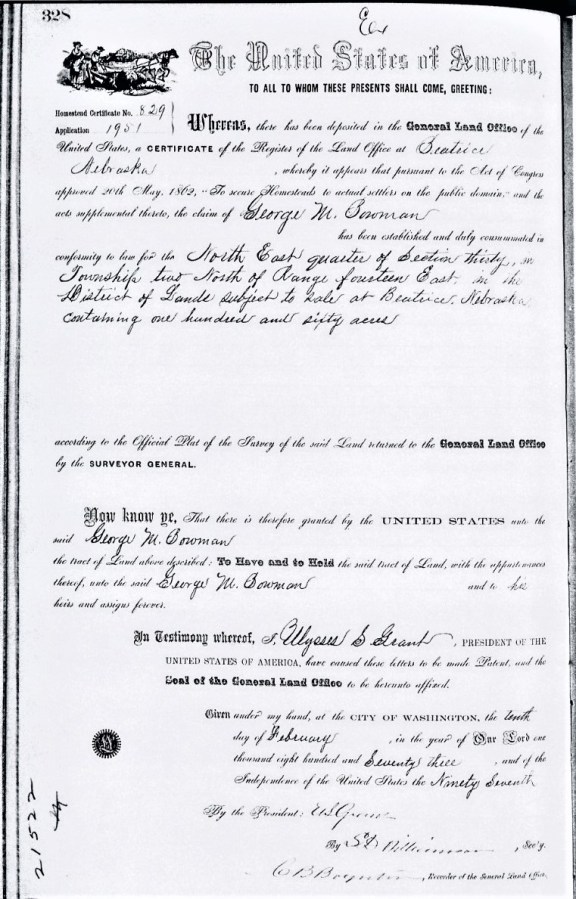 328
The United States of America,
TO ALL TO WHOM THESE PRESENTS SHALL COME, GREETING:
Homestead Certificate No. 829
Application 1951
Whereas, there has been deposited in the General Land Office of the
United States, a CERTIFICATE of the Register of the Land Office at Beatrice
Nebraska, whereby it appears that pursuant to the Act of Congress
approved 20th May, 1862, "To secure Homesteads to actual settlers on the public domain," and the
acts supplemental thereto, the claim of George M. Bowman
has been established and duly consummated in
conformity to law for the North East quarter of Section thirty, in
Township two North of Range fourteen East, in the
District of Lands subject to sale at Beatrice, Nebraska
containing one hundred and sixty acres
according to the Official Plat of the Survey of the said Land returned to the General Land Office
by the SURVEYOR GENERAL.
Now know ye, That there is therefore granted by the UNITED STATES unto the
said George M. Bowman
the tract of Land above described: To Have and to Hold the said tract of Land, with the appurtenances
thereof, unto the said George M. Bowman and to his
heirs and assigns forever.
In Testimony whereof, I, Ulysses S Grant, PRESIDENT OF THE
UNITED STATES OF AMERICA, have caused these letters to be made Patent, and the
Seal of the General Land Office to be hereunto affixed.
Given under my hand, at the CITY OF WASHINGTON, the tenth
day of February, in the year of Our Lord one
thousand eight hundred and Seventy three, and of the
Independence of the United States the Ninety Seventh
By the President: U S Grant
By , Sec'y.
C B Boynton, Recorder of the General Land Office.
21522